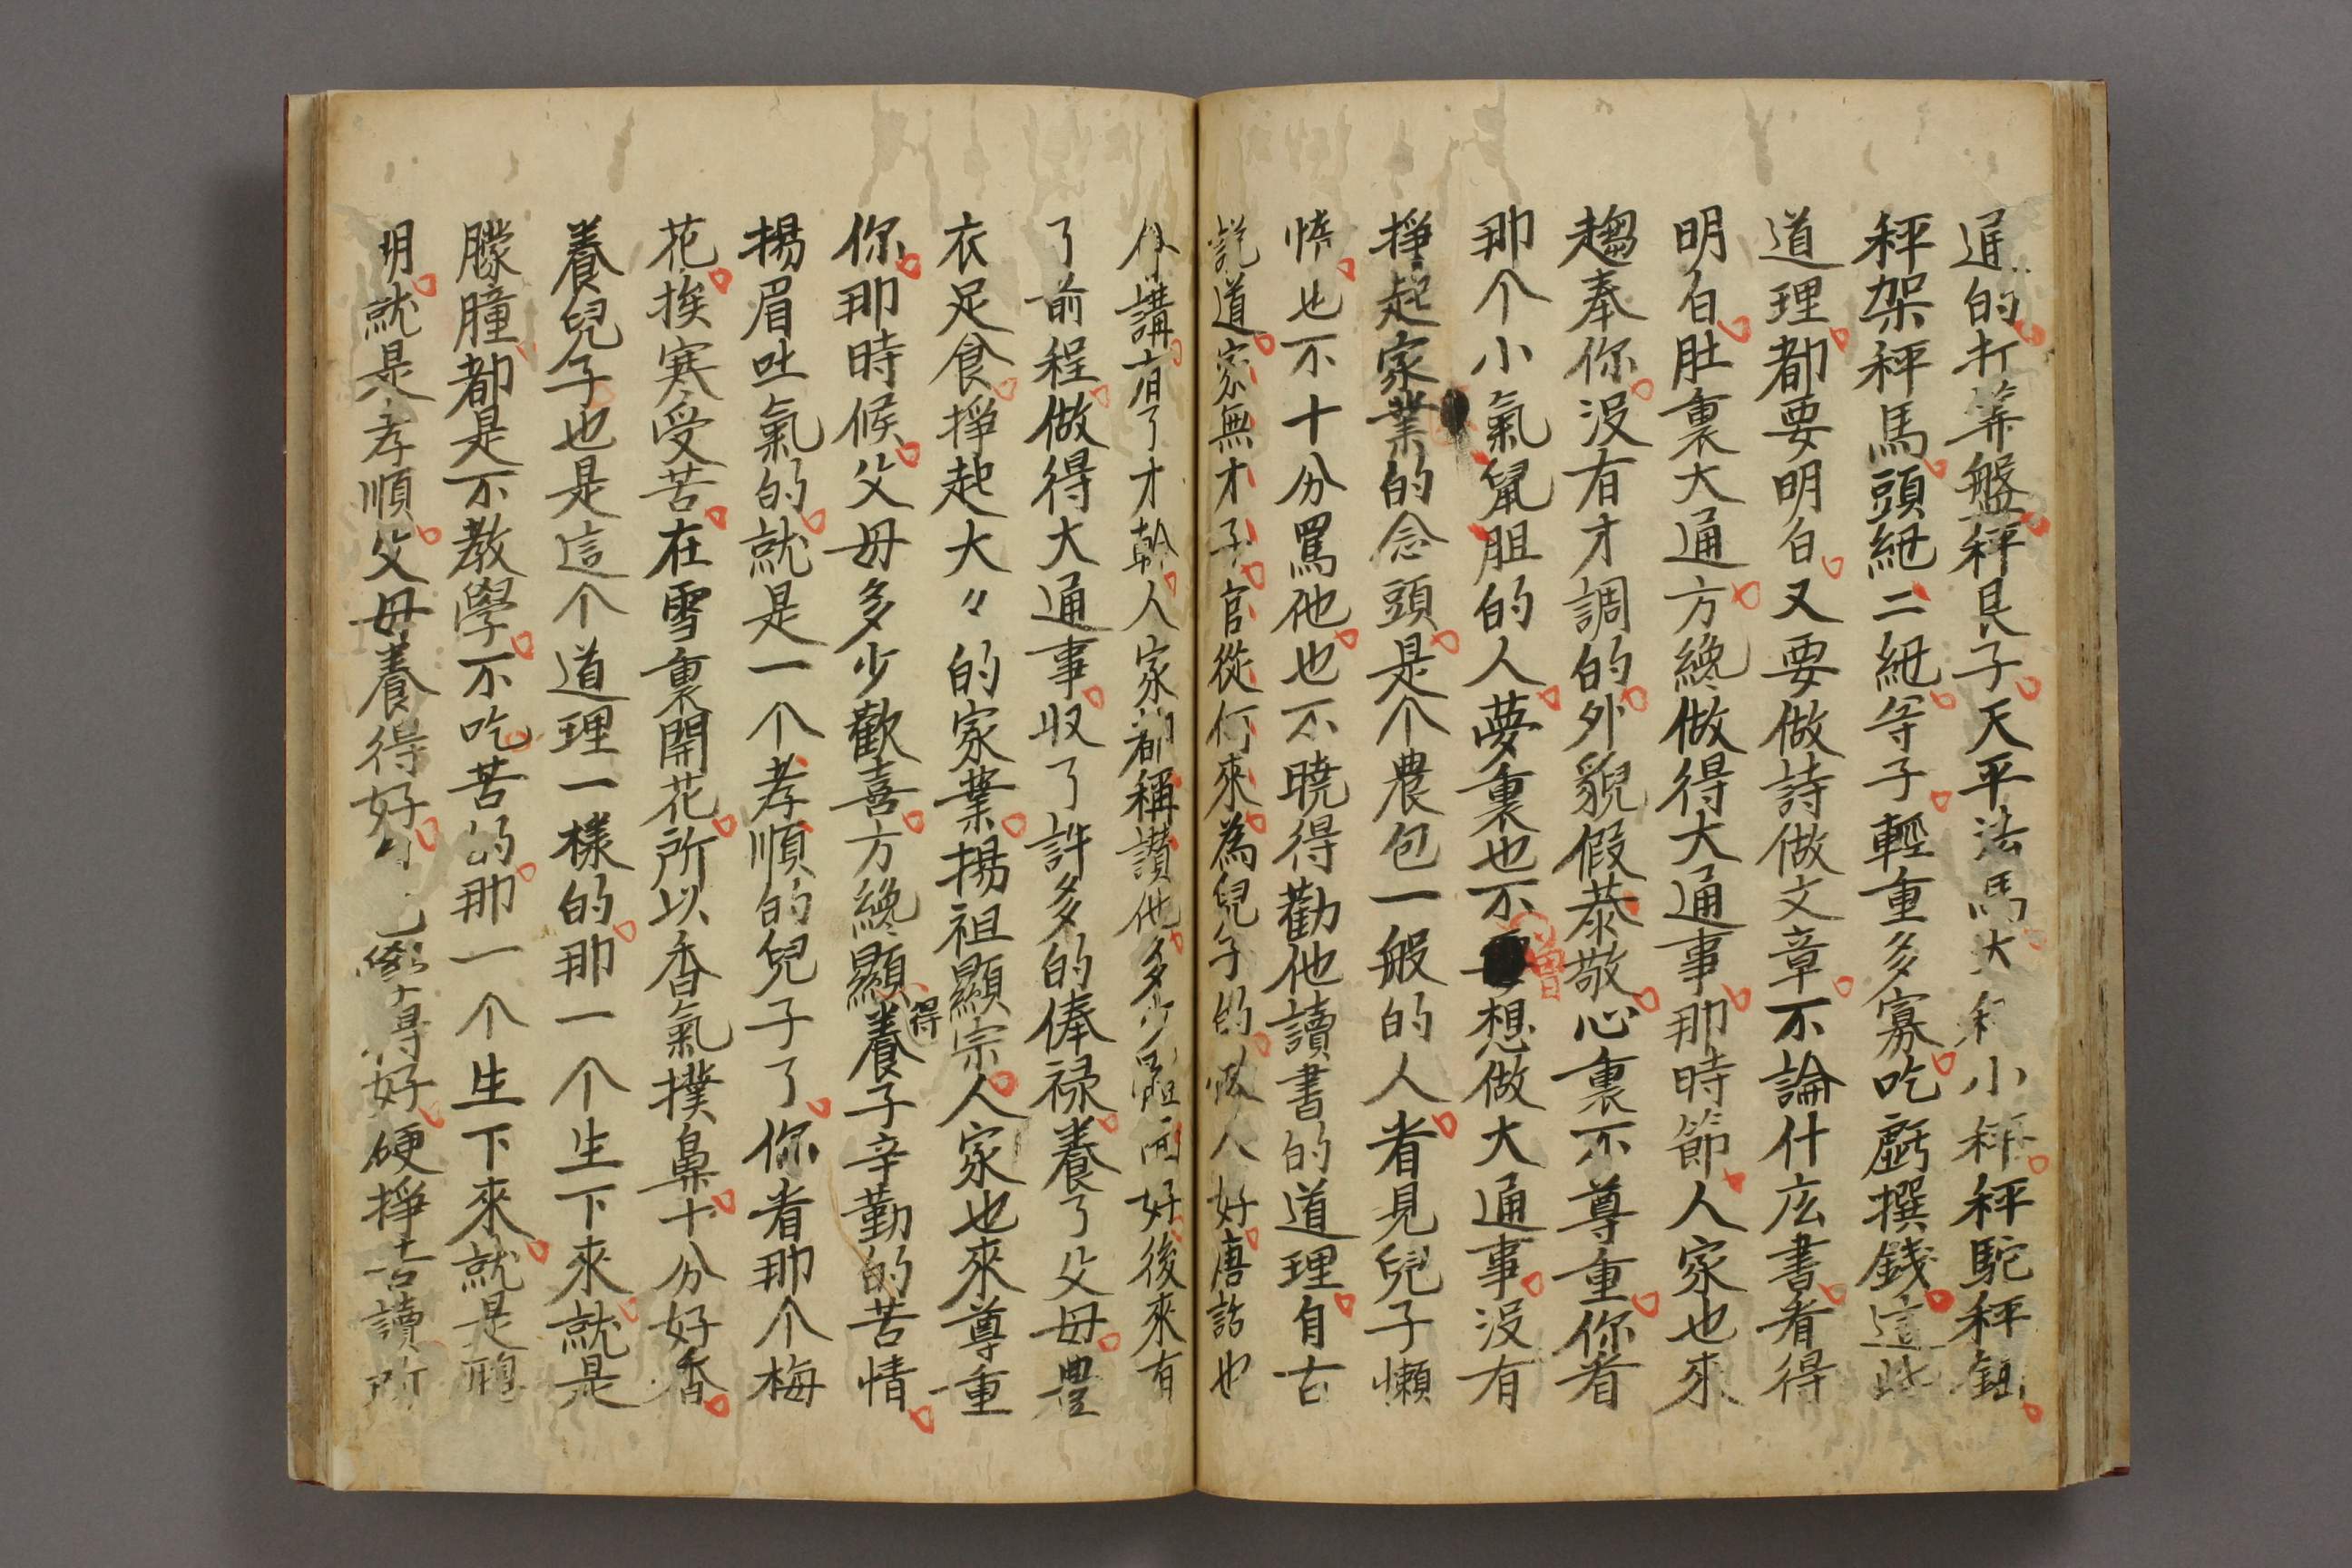 通的打筭盤秤艮子天平法馬大秤小秤秤駝秤鈕
秤架秤馬頭紐二紐等子輕重多寡吃虧撰錢這些
道理都要明白又要做詩做文章不論什庅書看得
明白肚裏大通方纔做得大通事那時節人家也來
趨奉你沒有才調的外貌假恭敬心裏不尊重你看
那个小氣鼠胆的人夢裏也不曾想做大通事沒有
掙起家業的念頭是个農包一般的人看見兒子懶
惰也不十分罵他也不曉得勸他讀書的道理自古
說道家無才子官從何來為兒子的人好唐話也
講有了才幹人家都稱讃他多少體面好後來有
了前程做得大通事収了許多的俸禄養了父母豊
衣足食掙起大〻的家業揚祖顯宗人家也來尊重
你那時候父母多少歡喜方纔顯得養子辛勤的苦情
揚眉吐氣的就是一个孝順的兒子了你看那个梅
花挨寒受苦在雪裏開花所以香氣撲鼻十分好香
養兒子也是這个道理一樣的那一个生下來就是
朦朣都是不教學不吃苦的那一个生下來就是聰
明就是孝順父母養得好得好硬掙讀所